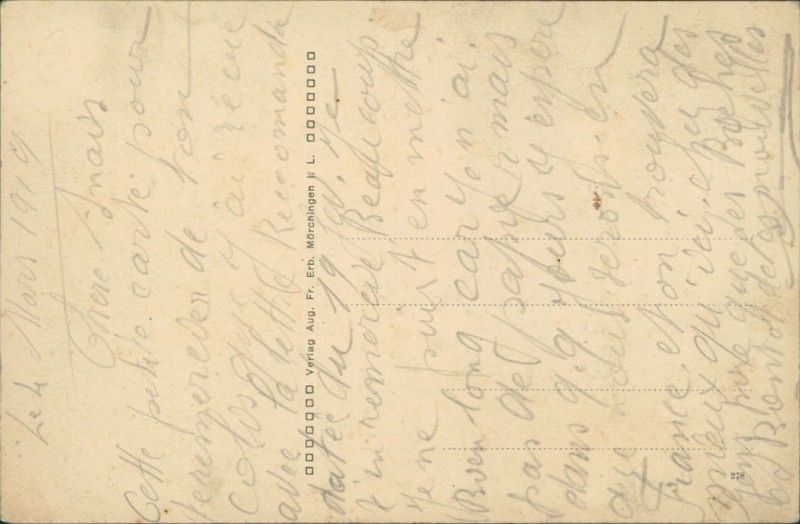 Le 4 Mars 1919
Chère Anais
Cette petite carte pour
te remercier de ton
colis que j'ai reçue
avec la lettre Recomandé
datée du 19 fev. Je
t'en remercie Beaucoup
Je ne puis t'en mettre
Bien long car je n'ai
pas de papier mais
dans q.q. jours j'espère
que nous serons en
France et on trouvera
mieux qu'ici chez des
que des Boches
Bientôt de tes nouvelles
Verlag Aug. Fr. Erb. Mörchingen i. L.
276